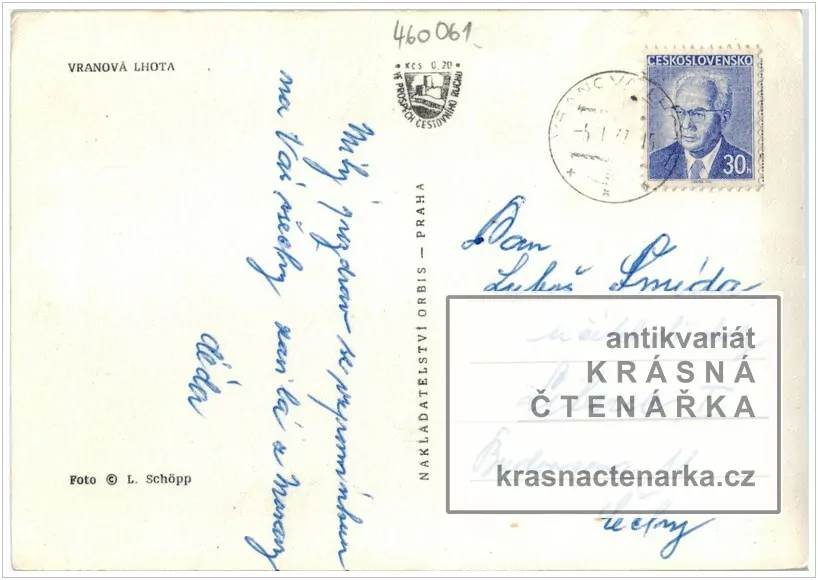 460061
VRANOVÁ LHOTA
KČS 0,20
VE PROSPĚCH CESTOVNÍHO RUCHU
ČESKOSLOVENSKO
30h
Milý pozdrav se vzpomínkou
na Vás všechny zasílá z Moravy
děda
NAKLADATELSTVÍ ORBIS — PRAHA
Pan
Luboš Šmída
antikvariát
KRÁSNÁ
ČTENÁŘKA
krasnactenarka.cz
Čechy
Foto © L. Schöpp